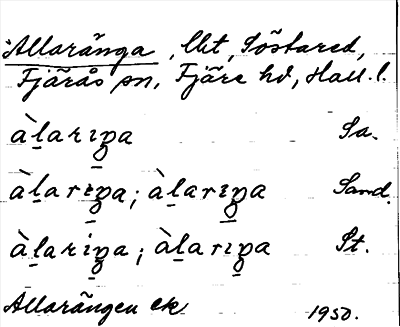 Allaränga, lht, Töstared,
Fjärås sn, Fjäre hd, Hall. l.
àl̠arıŋa Sa.
àl̠ariŋa; àl̠arıŋa Sand.
àl̠ariŋa; àl̠arıŋa St.
Allarängen ek 1950.